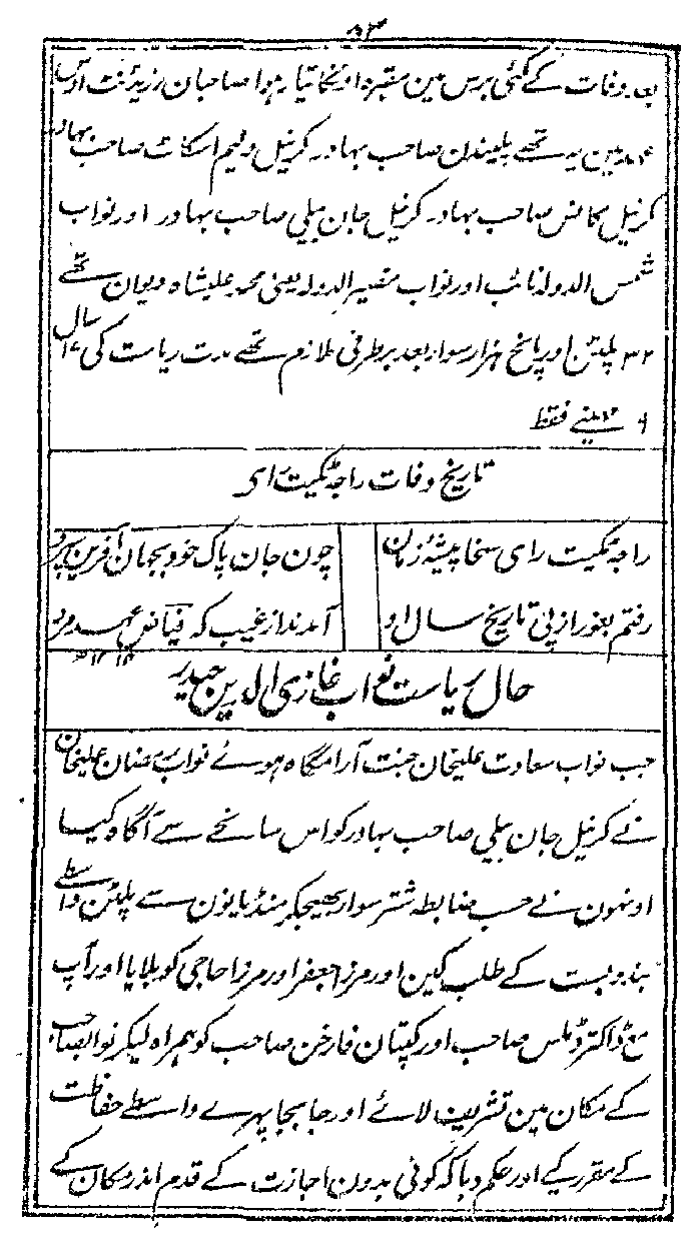 ۸۳
بعد وفات کے کئی برس مین مقبرہ اونکا تیار ہوا صاحبان رزیڈنٹ اوس
عہد مین یہ تھے بلیندن صاحب بہادر کرنیل ولیم اسکاٹ صاحب بہادر
کرنیل کالنس صاحب بہادر کرنیل جان بیلی صاحب بہادر اور نواب
شمس الدولہ نائب اور نواب نصیر الدولہ یعنی محمد علیشاہ دیوان تھے
۳۲ پلٹن اور پانچ ہزار سوار بعد برطرفی ملازم تھے مدت ریاست کی ۱۶ سال
۶ مہینے فقط
تاریخ وفات راجہ ٹکیت رای
راجہ ٹکیت رای سخا پیشۂ زمان
چون جان پاک خود بجہان آفرین سپرد
رفتم بغور از پی تاریخ سال او
آمد ندا ز غیب کہ فیاض عہد مرد
حال ریاست نواب غازی الدین حیدر
جب نواب سعادت علیخان جنت آرامگاہ ہوئے نواب رمضان علیخان
نے کرنیل جان بیلی صاحب بہادر کو اس سانحے سے آگاہ کیا
اونہون نے حسب ضابطہ شتر سوار بھیجکر منڈیانون سے پلٹن واسطے
بندوبست کے طلب کین اور مرزا جعفر اور مرزا حاجی کو بلایا اور آپ
مع ڈاکٹر ولس صاحب اور کپتان فارخن صاحب کو ہمراہ لیکر نوابصاحب
کے مکان مین تشریف لائے اور جابجا پہرے واسطے حفاظت
کے مقرر کیے اور حکم دیا کہ کوئی بدون اجازت کے قدم اندر مکان کے